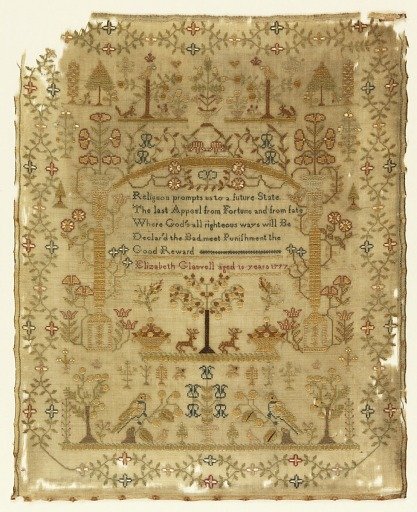 Religion prompts us to a future State
The last Appeal from Fortune and from fate
Where God's all righteous ways will Be
Declar'd the Bad meet Punishment the
Good Reward
Elizabeth Glaswell aged 10 years 1777